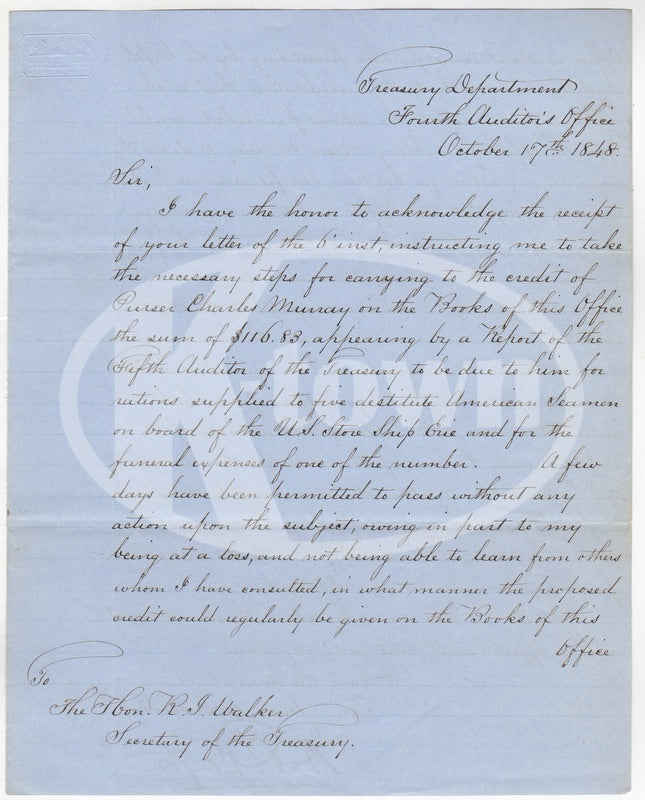 Treasury Department
Fourth Auditor's Office
October 17th 1848.
Sir,
I have the honor to acknowledge the receipt
of your letter of the 6 inst, instructing me to take
the necessary steps for carrying to the credit of
Purser Charles Murray on the Books of this Office
the sum of $116.83, appearing by a Report of the
Fifth Auditor of the Treasury to be due to him for
rations supplied to five destitute American Seamen
on board of the U.S. Store Ship Erie and for the
funeral expenses of one of the number. A few
days have been permitted to pass without any
action upon the subject, owing in part to my
being at a loss, and not being able to learn from others
whom I have consulted, in what manner the proposed
credit could regularly be given on the Books of this
Office
To
The Hon. R. J. Walker
Secretary of the Treasury.
K-town